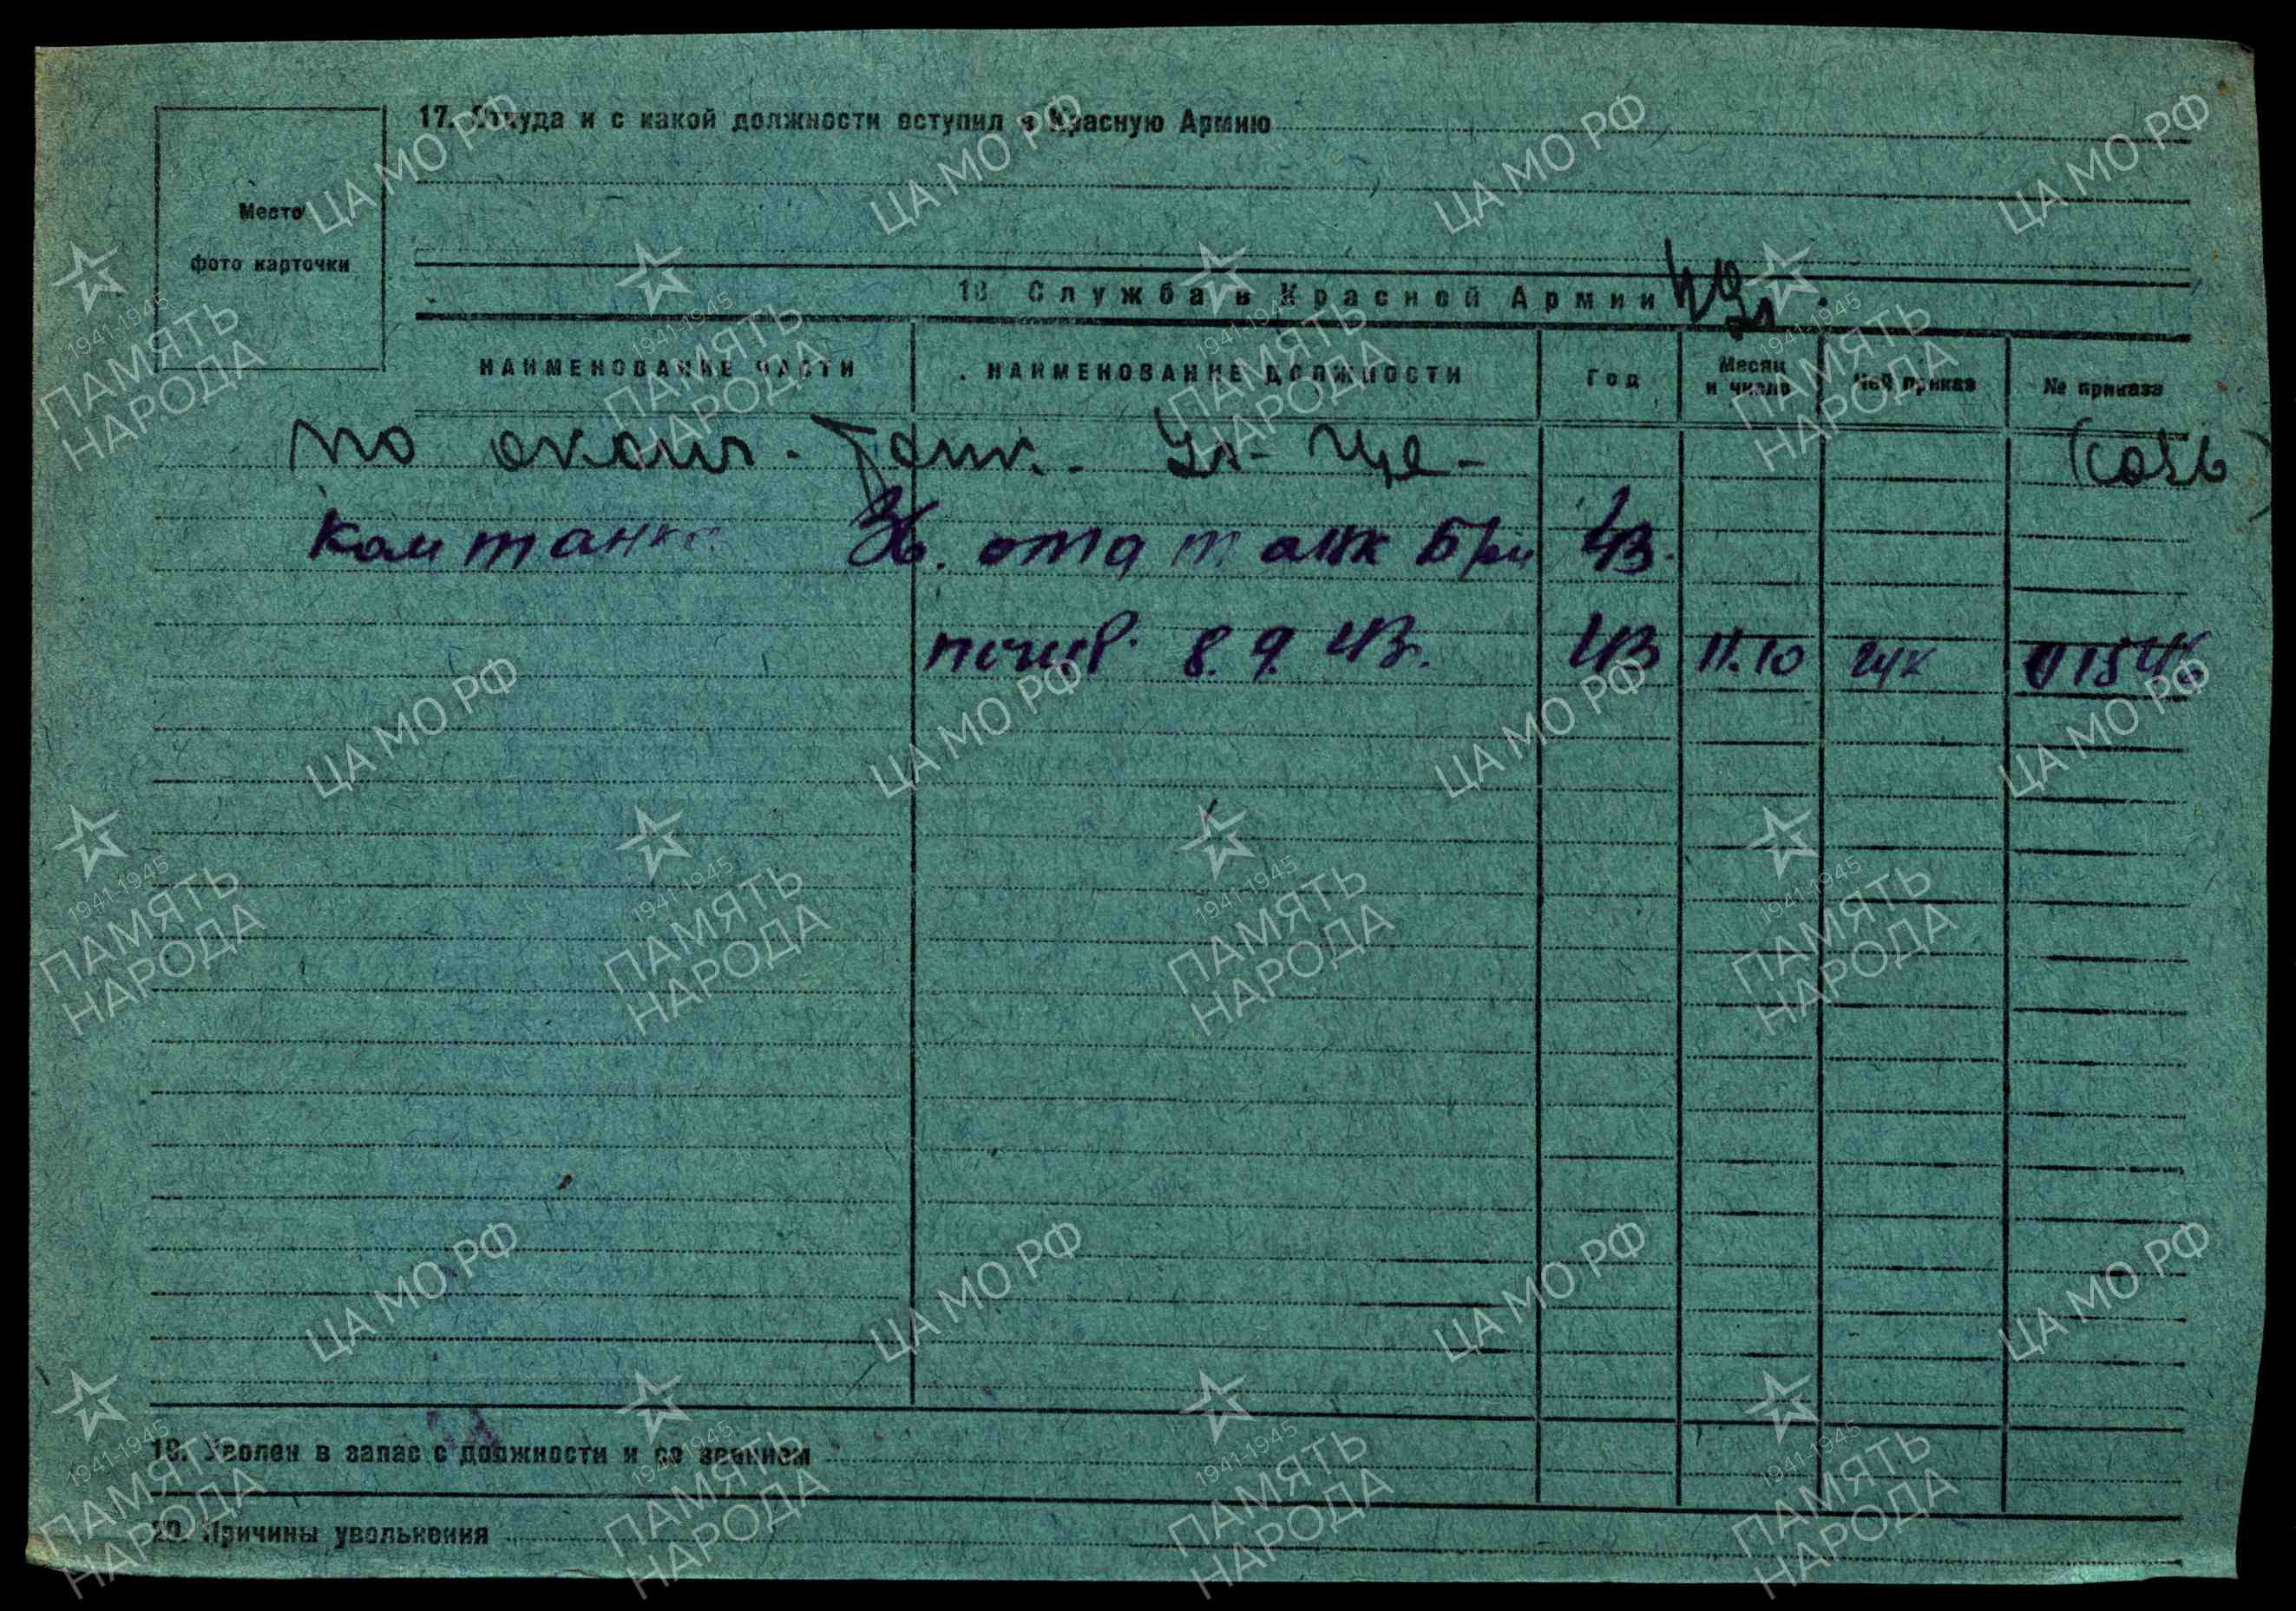 17. Откуда и с какой должности вступил в Красную Армию
Место
фото карточки
18 Служба в Красной Армии
НАИМЕНОВАНИЕ ЧАСТИ
НАИМЕНОВАНИЕ ДОЛЖНОСТИ
Год
Месяц
и число
Чей приказ
№ приказа
по оконч. Танк. Уч-ще-
Ком танка 36. отд танк Бри 43.
погиб 8.9.43. 43 11.10 гук 01546
19. Уволен в запас с должности и со званием
20. Причины увольнения
ЦА МО РФ
1941-1945
ПАМЯТЬ
НАРОДА